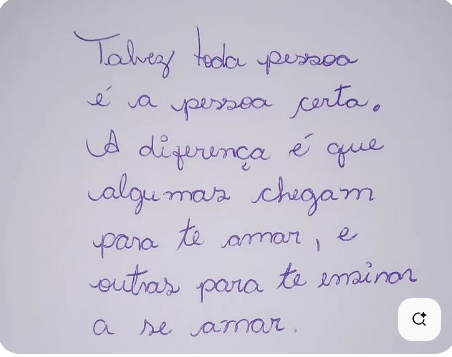 Talvez toda pessoa
é a pessoa certa.
A diferença é que
algumas chegam
para te amar, e
outras para te ensinar
a se amar.